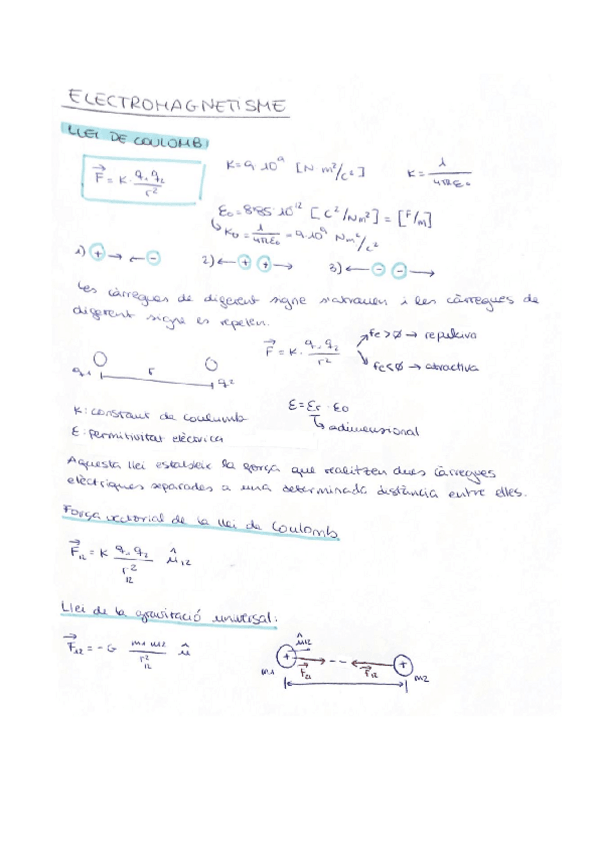 ELECTROMAGNETISME
LLEI DE COULOMB:
F⃗ = K · q₁ q₂ / r²
K = 9·10⁹ [N·m²/C²]
K = 1 / 4πε₀
ε₀ = 8'85·10¹² [C²/Nm²] = [F/m]
K₀ = 1 / 4πε₀ = 9·10⁹ Nm²/C²
1) + → ← −
2) ← + + →
3) ← − − →
Les càrregues de diferent signe s'atrauen i les càrregues de
diferent signe es repelen.
F⃗ = K · q₁ q₂ / r²
fe > 0 → repulsiva
fe < 0 → atractiva
q1 r q2
K: constant de coulumb
ε = εr · ε0
adimensional
E: permitivitat elèctrica
Aquesta llei estableix la força que realitzen dues càrregues
elèctriques separades a una determinada distància entre elles.
Força vectorial de la llei de Coulomb
F⃗₁₂ = K q₁ q₂ / r²₁₂ û₁₂
Llei de la gravitació universal:
F⃗₁₂ = - G m1 m2 / r²₁₂ û
û12
+ +
F⃗21 F⃗12
m1 m2